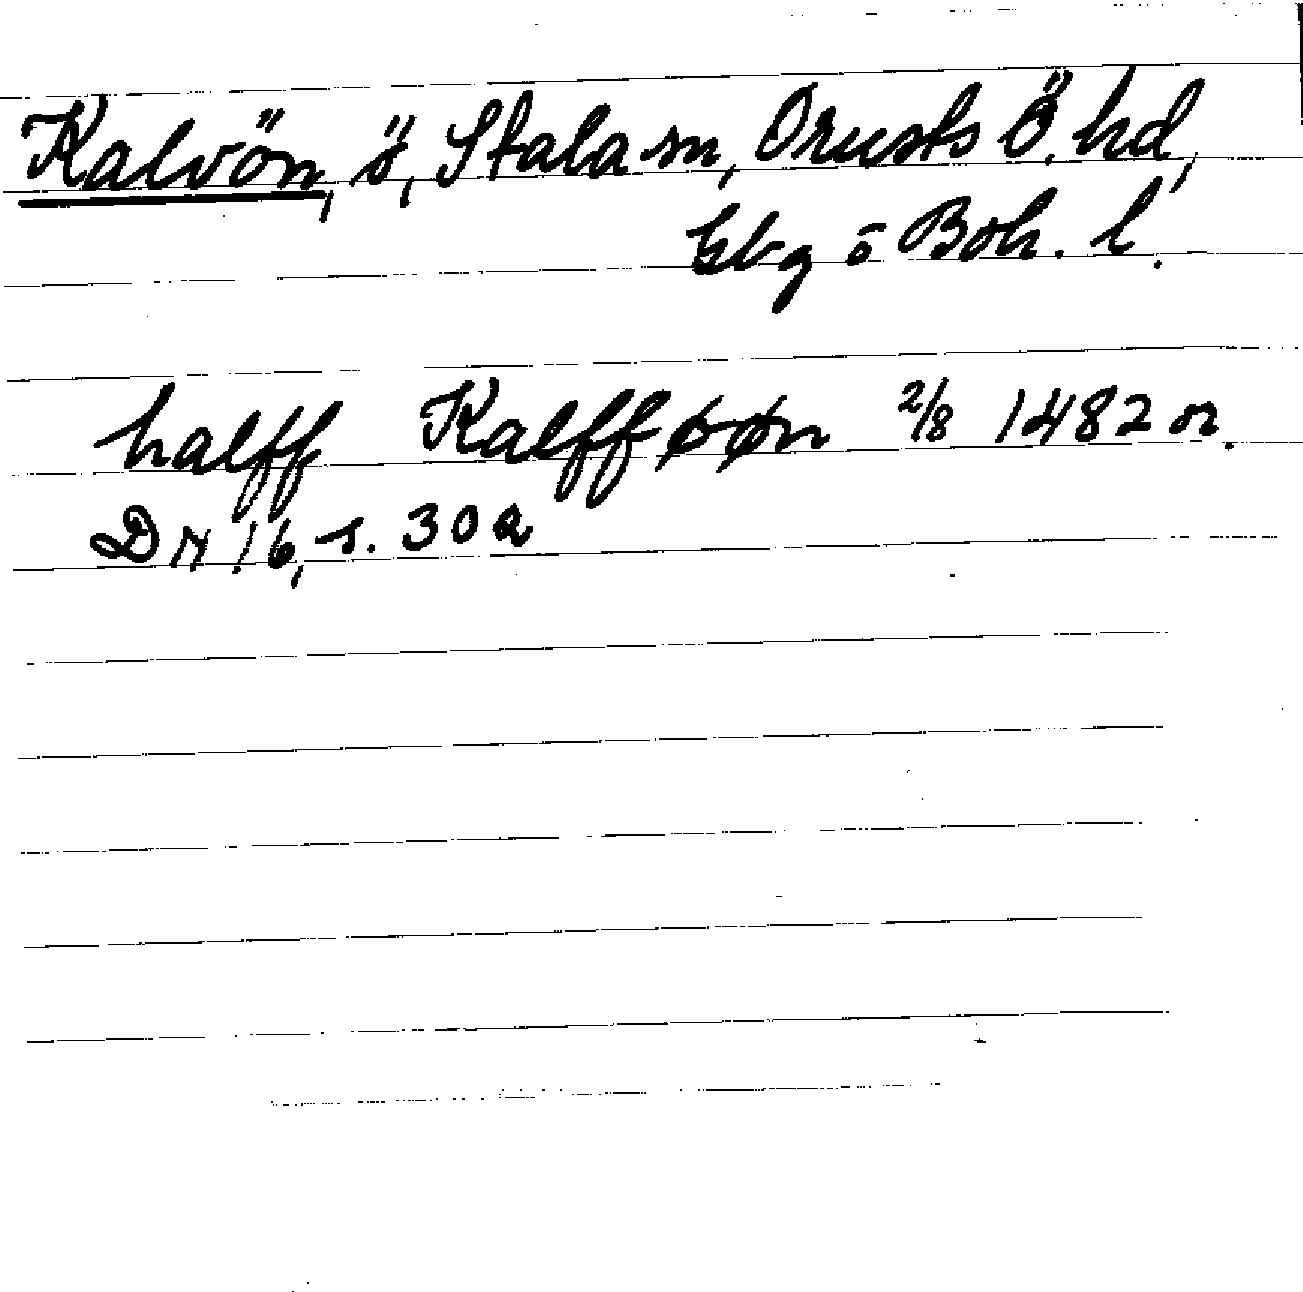 Kalvön, ö, Stala sn, Orusts Ö. hd,
Gbg o Boh. l.
halff Kalfføøn 2/8 1482 or.
DN 16, s. 302